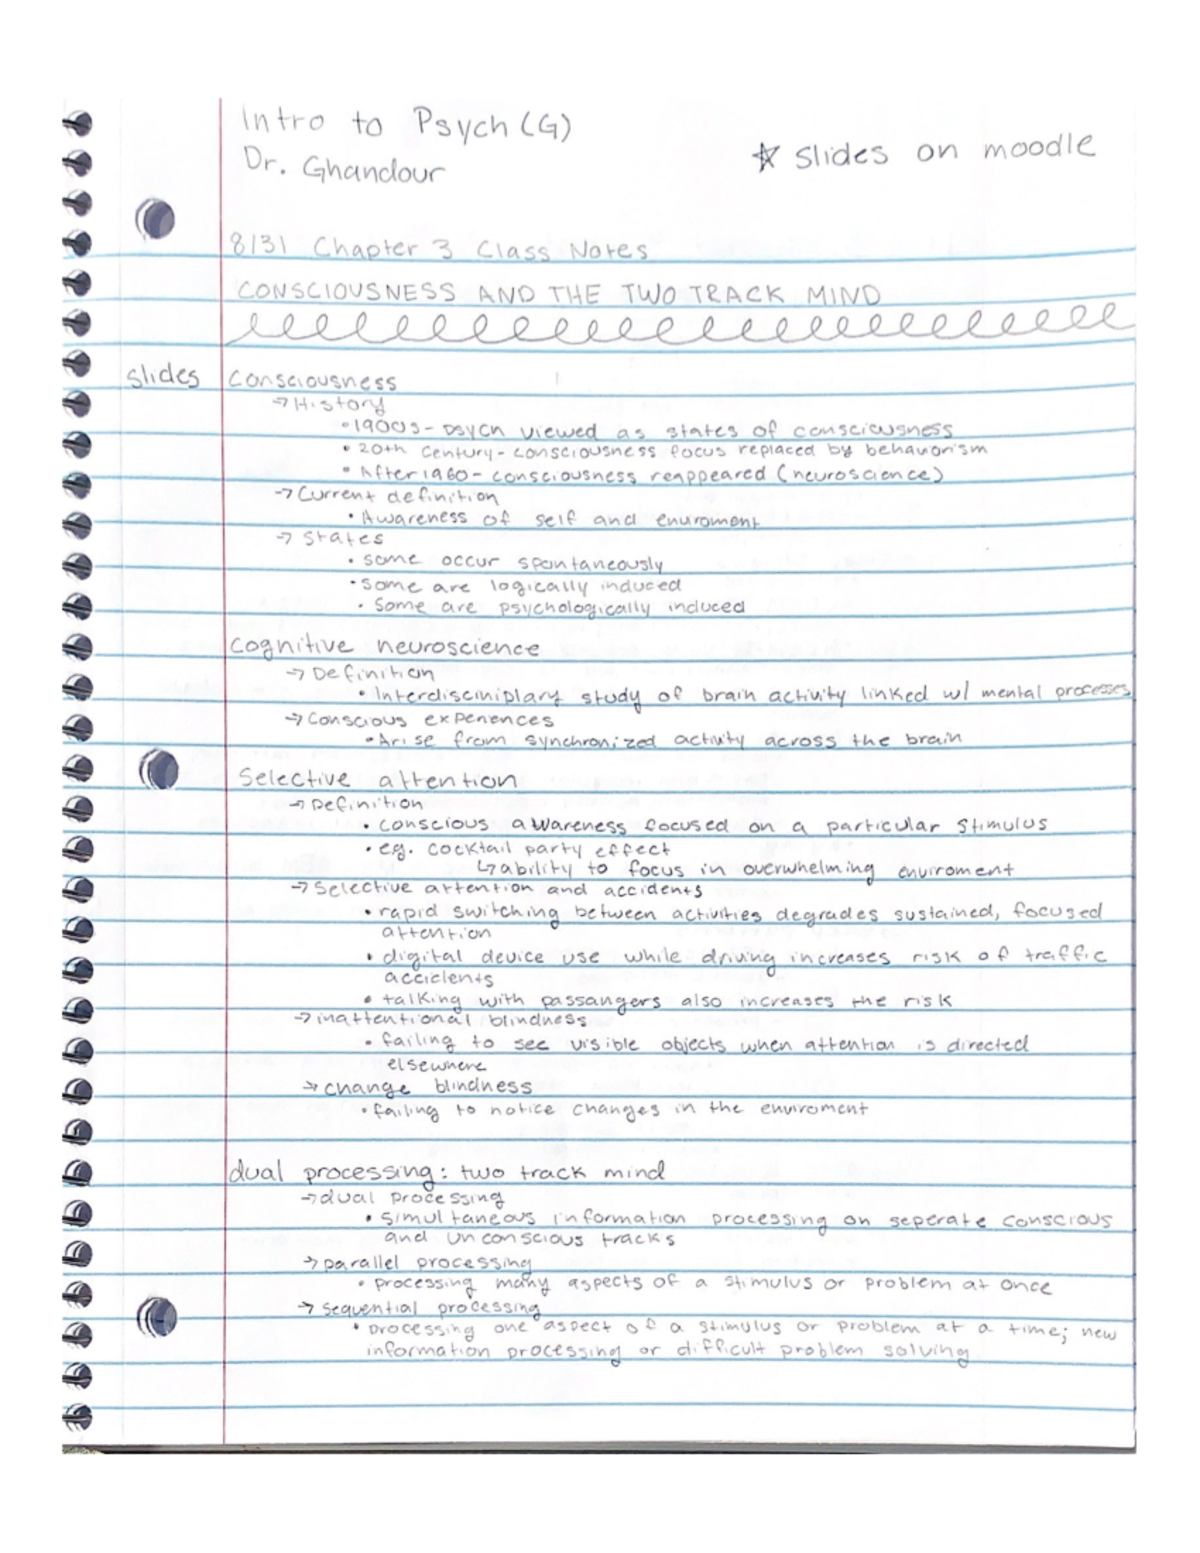 Intro to Psych (G)
☆ slides on moodle
Dr. Ghandour
8/31 Chapter 3 Class Notes
CONSCIOUSNESS AND THE TWO TRACK MIND
slides
Consciousness
→ History
• 1900s - psych viewed as states of consciousness
• 20th century - consciousness focus replaced by behavorism
• After 1960 - consciousness reappeared (neuroscience)
→ Current definition
• Awareness of self and enviroment
→ States
• some occur spontaneously
• Some are logically induced
• Some are psychologically induced
Cognitive neuroscience
→ Definition
• Interdisciniplary study of brain activity linked w/ mental processes
→ Conscious experiences
• Arise from synchronized activity across the brain
Selective attention
→ Definition
• conscious awareness focused on a particular stimulus
• eg. cocktail party effect
↳ ability to focus in overwhelming enviroment
→ Selective attention and accidents
• rapid switching between activities degrades sustained, focused
attention
• digital device use while driving increases risk of traffic
accidents
• talking with passangers also increases the risk
→ inattentional blindness
• failing to see visible objects when attention is directed
elsewhere
→ change blindness
• failing to notice changes in the enviroment
dual processing: two track mind
→ dual processing
• simultaneous information processing on seperate conscious
and unconscious tracks
→ parallel processing
• processing many aspects of a stimulus or problem at once
→ sequential processing
• processing one aspect of a stimulus or problem at a time; new
information processing or difficult problem solving